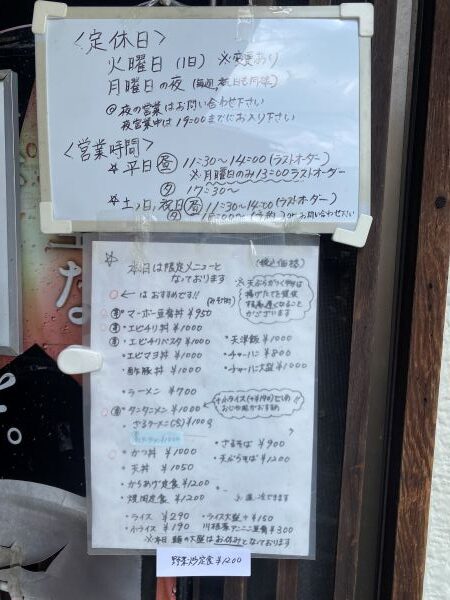 〈定休日〉
火曜日(1日) ※変更あり
月曜日の夜
夜の営業はお問い合わせ下さい
夜営業中は19:00までにお入り下さい
〈営業時間〉
☆平日 昼 11:30〜14:00(ラストオーダー)
※月曜日のみ13:00ラストオーダー
夕 17:30〜
☆土,日,祝日 昼 11:30〜14:00(ラストオーダー)
お問い合せ下さい
☆ 本日は限定メニューと
なっております
(税込価格)
○←はおすすめです!!
※天ぷらがつく物は
揚げたてを提供
する為遅くなること
がございます
マーボー豆腐丼 ¥950
エビチリ丼 ¥1000
エビチリパスタ ¥1000
・エビマヨ丼 ¥1000
・酢豚丼 ¥1000
・天津飯 ¥1000
・チャーハン ¥800
・チャーハン大盛 ¥1000
・ラーメン ¥700
タンタンメン ¥1000
+小ライス(+¥190)でしめ
おじや風がおすすめ
・ざるラーメン
・かつ丼 ¥1000
・天丼 ¥1050
・からあげ定食 ¥1200
・焼肉定食 ¥1200
・ざるそば ¥900
・天ぷらそば ¥1200
・ライス ¥290
・小ライス ¥190
・ライス大盛 +¥150
・川根茶アンニン豆腐 ¥300
※本日 麺の大盛はお休みとなっております
野菜炒定食 ¥1200